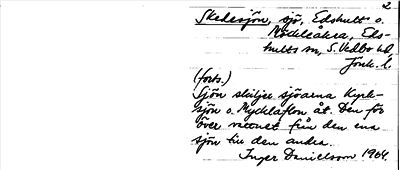 2
Skedesjön, sjö, Edshults o.
Mycklåkra, Eds-
hults sn, S. Vedbo hd,
Jönk. l.
(forts.)
Sjön skiljer sjöarna Kyrk-
sjön o. Mycklaflon åt. Den för
över vattnet från den ena
sjön till den andra.
Inger Danielsson 1964.